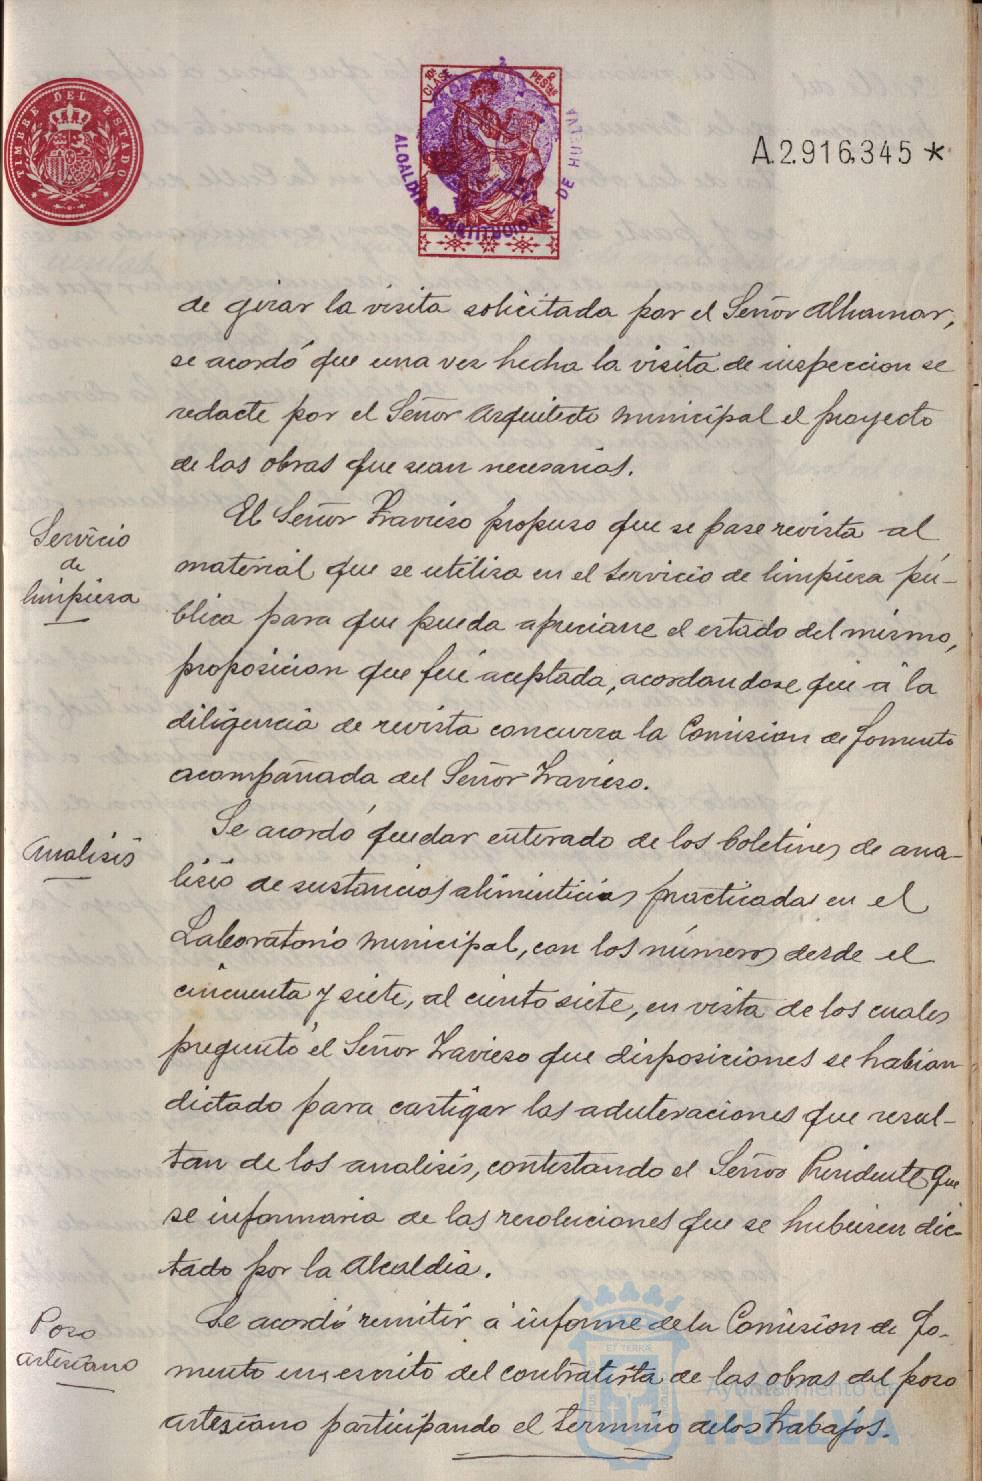 TIMBRE DEL ESTADO
10ª CLASE
2 PESTAS
ALCALDIA CONSTITUCIONAL DE HUELVA
A.2.916.345 *
de girar la visita solicitada por el Señor Alhamar,
se acordó que una vez hecha la visita de inspeccion se
redacte por el Señor Arquitecto municipal el proyecto
de las obras que sean necesarias.
Servicio
de
limpieza
El Señor Travieso propuso que se pase revista al
material que se utiliza en el servicio de limpieza pú-
blica para que pueda apreciarse el estado del mismo,
proposicion que fué aceptada, acordandose que á la
diligencia de revista concurra la Comision de fomento
acompañada del Señor Travieso.
Analisis
Se acordó quedar enterado de los boletines de ana-
lisis de sustancias alimenticias practicadas en el
Laboratorio municipal, con los números desde el
cincuenta y siete, al ciento siete, en vista de los cuales
preguntó el Señor Travieso que disposiciones se habian
dictado para castigar las aduteraciones que resul-
tan de los analisis, contestando el Señor Presidente que
se informaria de las resoluciones que se hubiesen dic-
tado por la Alcaldia.
Poso
artesiano
Se acordó remitir á informe de la Comision de fo-
mento un escrito del contratista de las obras del poso
artesiano participando el termino de los trabajos.
ET TERRÆ
Ayuntamiento de
HUELVA